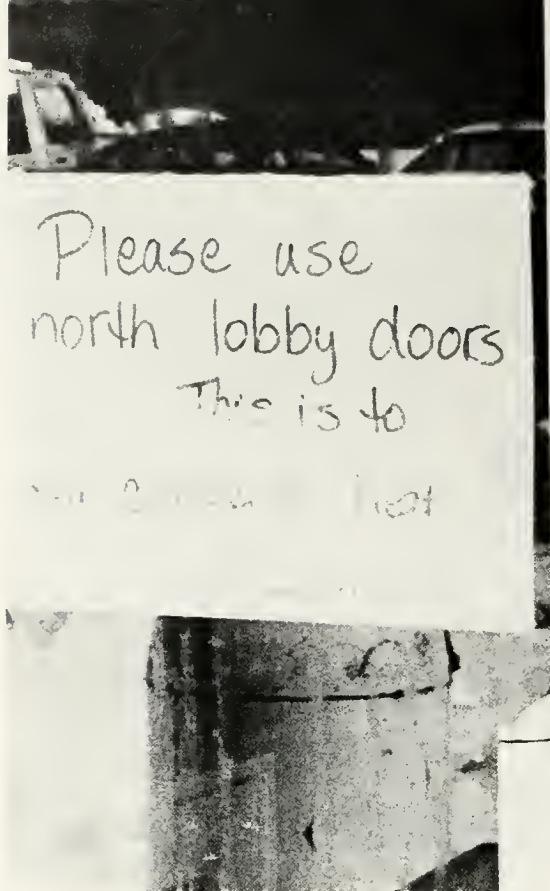 Please use
north lobby doors
This is to
heat